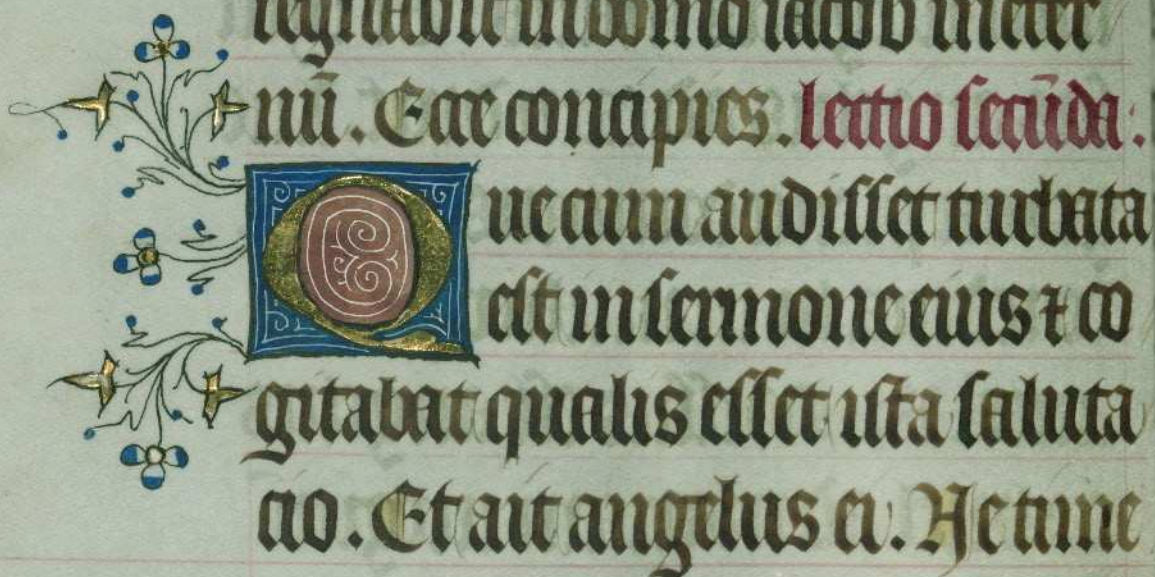 regnabit in domo iacob in eter
nū. Ecce concipies. lectio secūda:
Que cum audisset turbata
est in sermone eius ⁊ co
gitabat qualis esset ista saluta
cio. Et ait angelus ei. Ne time